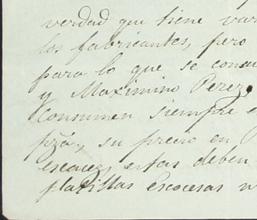 verdad que tiene var
los fabricantes, pero
para lo que se consu
y Maximino Perez
Consumen siempre
pza, su precio en
escacez, estas deben
platillas escocesas n